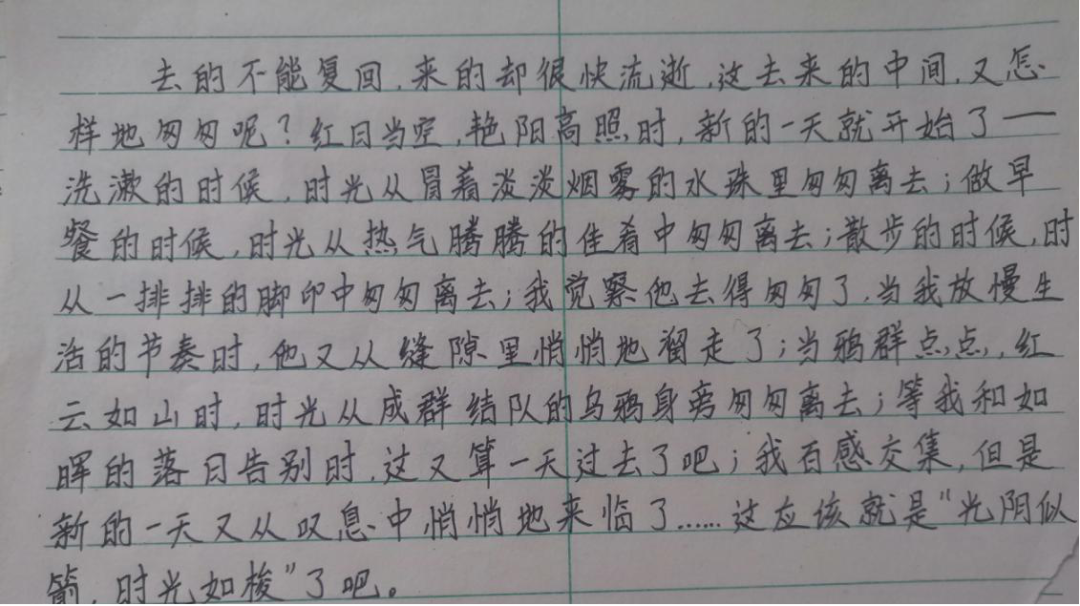 去的不能复回，来的却很快流逝，这去来的中间，又怎
样地匆匆呢？红日当空，艳阳高照时，新的一天就开始了——
洗漱的时候，时光从冒着淡淡烟雾的水珠里匆匆离去；做早
餐的时候，时光从热气腾腾的佳肴中匆匆离去；散步的时候，时
从一排排的脚印中匆匆离去；我觉察他去得匆匆了，当我放慢生
活的节奏时，他又从缝隙里悄悄地溜走了；当鸦群点点，红
云如山时，时光从成群结队的乌鸦身旁匆匆离去；等我和如
晖的落日告别时，这又算一天过去了吧；我百感交集，但是
新的一天又从叹息中悄悄地来临了……这应该就是“光阴似
箭，时光如梭”了吧。